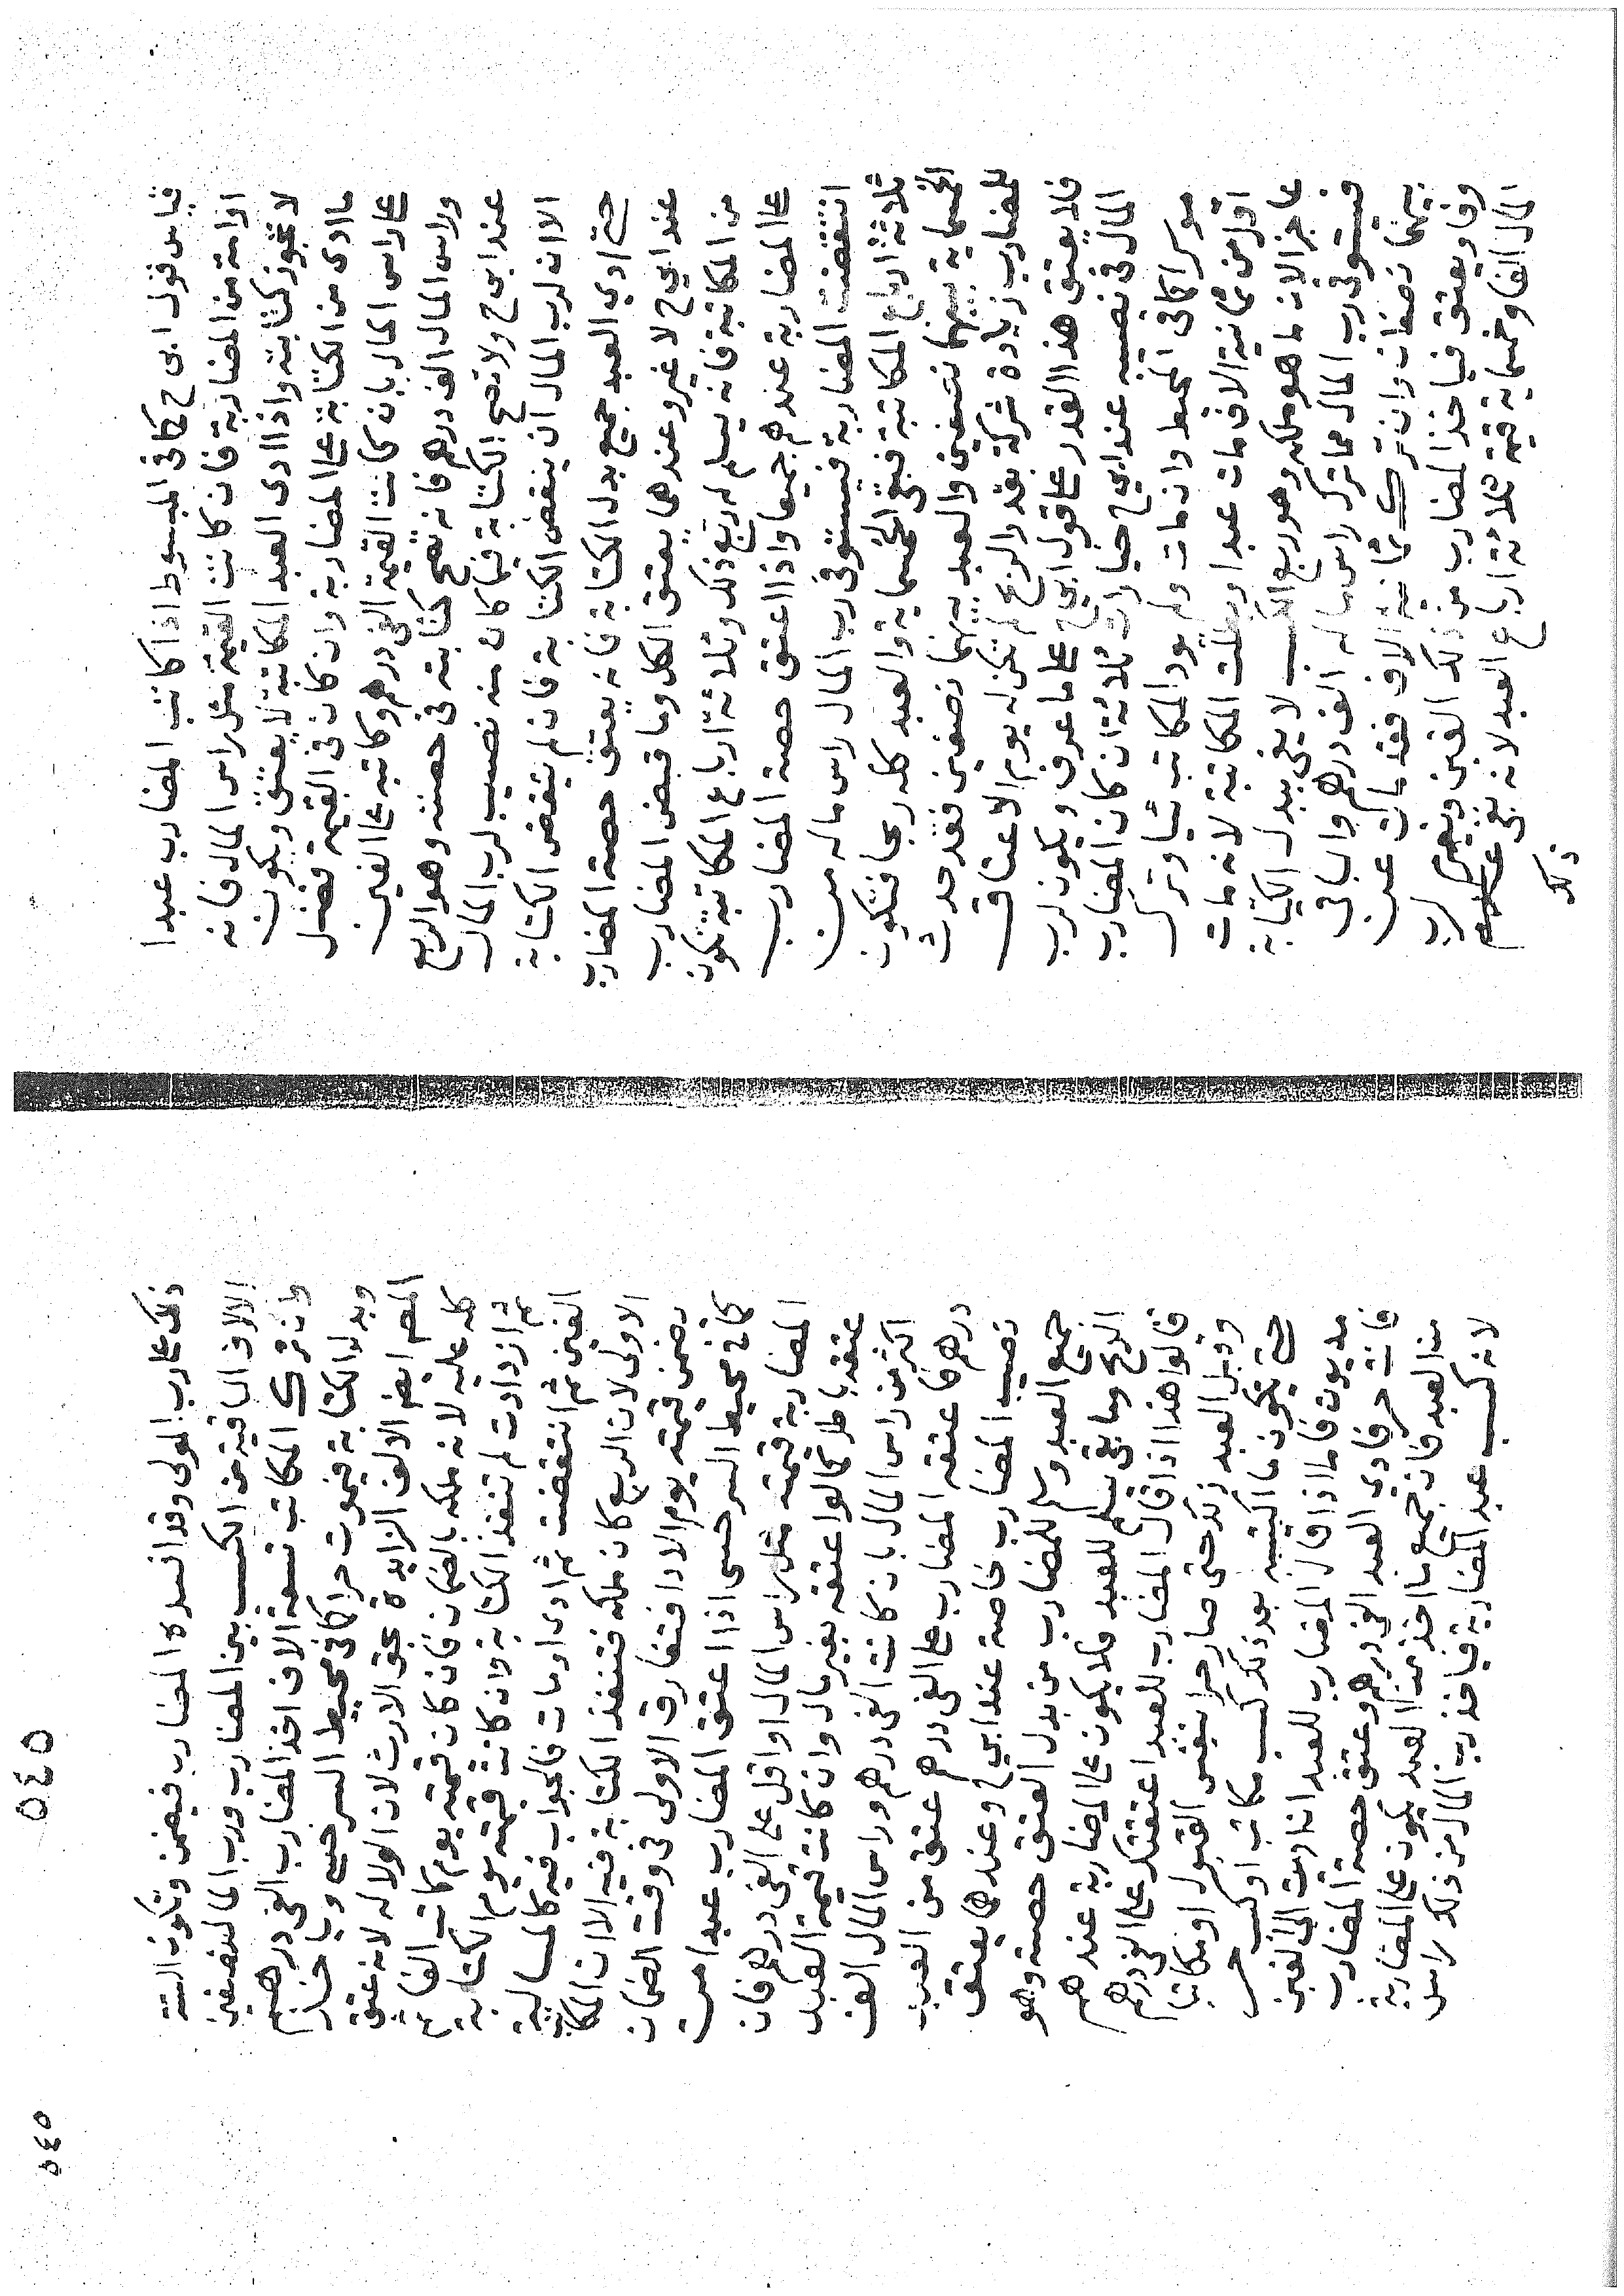 قياس قول ابى ح كما فى المبسوط اذا كاتب المضارب عبدا
اوامة من المضاربة فان كانت القيمة مثل راس المال فانه
لا تجوز كتابته واذا ادى العبد المكاتبة لا يعتق ويكون
ما ادى من الكتابة على المضاربة وان كان فى القيمة فضل
على راس المال بان كانت القيمة الفى درهم وكاتبه على الفين
وراس المال الف درهم فانه تصح كتابته فى حصته وهو الربع
عند ابى ح ولا تصح الكتابة فيما كان منه نصيب لرب المال
الا ان لرب المال ان ينقض الكتابة فان لم ينقض الكتابة
حتى ادى العبد جميع بدل الكتابة فانه يعتق حصة المضارب
عند ابي ح لا غير وعندهما يعتق الكل وما قبض المضارب
من المكاتبة فانه يسلم له ربع ذلك وثلاثة ارباع المكاتبة تكون
على المضاربة عندهم جميعا واذا اعتق حصة المضارب
انتقضت المضاربة فيستوفى رب المال راس ماله من
ثلاثة ارباع المكاتبة فبقى الخمسماية والعبد كله ربحا فتكون
الخمسماية بينهما نصفين والعبد بينهما نصفين فقد حدث
للمضارب زيادة شركة بقدر الربع لم تكن له يوم الاعتاق
فلا يعتق هذا القدر على قول ابي ح على ما عرف ويكون لرب
المال فى نصيبه عند ابي ح خيارات ثلاثة ان كان المضارب
موسرا كما فى المحيط وان مات ولم يود المكاتب شيا وترك
اقل من ثمانية الاف مات عبدا وبطلت المكاتبة لانه مات
عاجزا لانه ما هو ملكه وهو ربع الكسب لا يفى ببدل الكتابة
فيستوفى رب المال مما ترك راس ماله الف درهم والباقى
بينهما نصفان وان ترك ثمانية الاف فقد مات عن
وفا ويعتق فياخذ المضارب من ذلك الفين ويضمن لرب
المال الفا وخمسماية قيمة ثلاثة ارباع العبد لانه بقى
ذلك
ذلك على رب المولى وقد افسده المضارب فيضمن وتكون الستة
الالاف الباقية من الكسب بين المضارب ورب المال نصفين
وان ترك المكاتب تسعة الاف اخذ المضارب الفى درهم
وبدل الكتابة فيموت حرا كما فى محيط السرخسي وياخذ
المضم ايضا الالف الزايدة بحق الارث لان الولا له لانه عتق
كله عليه لانه ملكه بالضمان فان كان قيمته يوم كاتب الفا
ثم ازدادت لم تنفذ الكتابة وان كانت قيمته يوم الكتابة
الفين ثم انتقضت ثم ادى او مات فالجواب فيه كالمسالة
الاولى لان الربع كان ملكه فتنفذ الكتابة فيه الا ان المكاتب
يضمن قيمته يوم الادا فتفارق الاولى فى وقت الضمان
كما فى محيط السرخسى اذا اعتق المضارب عبدا من
المضاربة قيمته مثل راس المال او اقل على الفى درهم فان
عتقه باطل كما لو اعتقه بغير مال وان كانت قيمة العبد
اكثر من راس المال بان كانت الفى درهم وراس المال الف
درهم فاعتقه المضارب على الفى درهم عتق من العبد
نصيب المضارب خاصة عند ابي ح وعندهما يعتق
جميع العبد وسلم للمضارب من بدل العتق حصته وهو
الربع وما بقى يسلم للعبد فلا يكون على المضاربة عندهم
قالوا هذا اذا قال المضارب للعبد اعتقتك على الفى درهم
وقبل العبد ذلك حتى صار حرا بنفس القبول او مكاتبا
حتى يكون ما اكتسبه بعد ذلك كسب مكاتب او كسب حر
مديون فاما اذا قال المضارب للعبد ان اديت الي الفين
فانت حر فادى العبد الفى درهم وعتق حصة المضارب
من العبد فان جميع ما اخذ من العبد يكون على المضاربة
لانه كسب عبد المضاربة فياخذ رب المال من ذلك راس
٥٤٥
٥٤٥